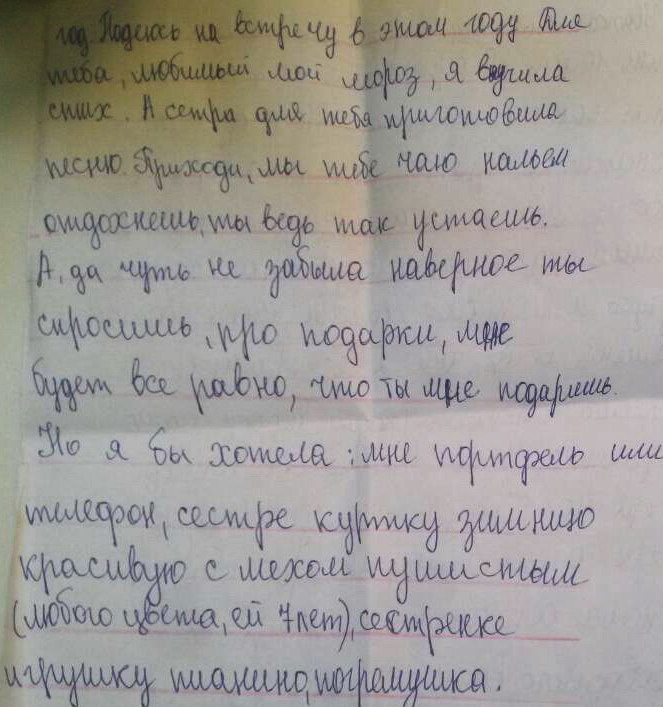 год. Надеюсь на встречу в этом году Для
тебя, любимый мой мороз, я выучила
стих. А сетра для тебя приготовила
песню. Приходи, мы тебе чаю нальем
отдохнешь, ты ведь так устаешь.
А, да чуть не забыла наверное ты
спросишь, про подарки, мне
будет все равно, что ты мне подаришь.
Но я бы хотела: мне портфель или
телефон, сестре куртку зимнюю
красивую с мехом пушистым
(любого цвета, ей 7 лет), сестренке
игрушку пианино, погремушка.